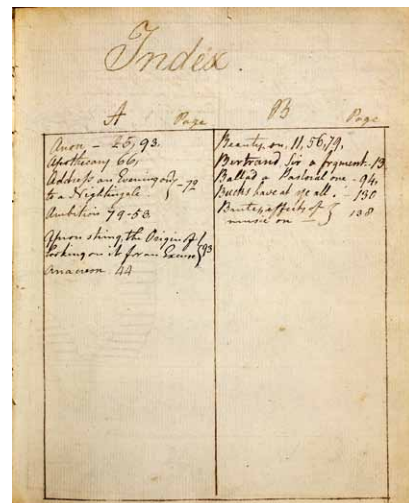 Index.
A Page
Anon - 25, 93
Apothecary 66,
Address an Evening one
to a Nightingale - 72
Ambition 79-53
Apron string, the Origin of
looking on it for an Excuse 93
Anacreon 44
B Page
Beauty, on, 11, 56, 79,
Bertrand Sir a fragment - 13
Ballad a Pastoral one - 94,
Bucks have at ye all. - 130
Brutes, effects of
music on - 138